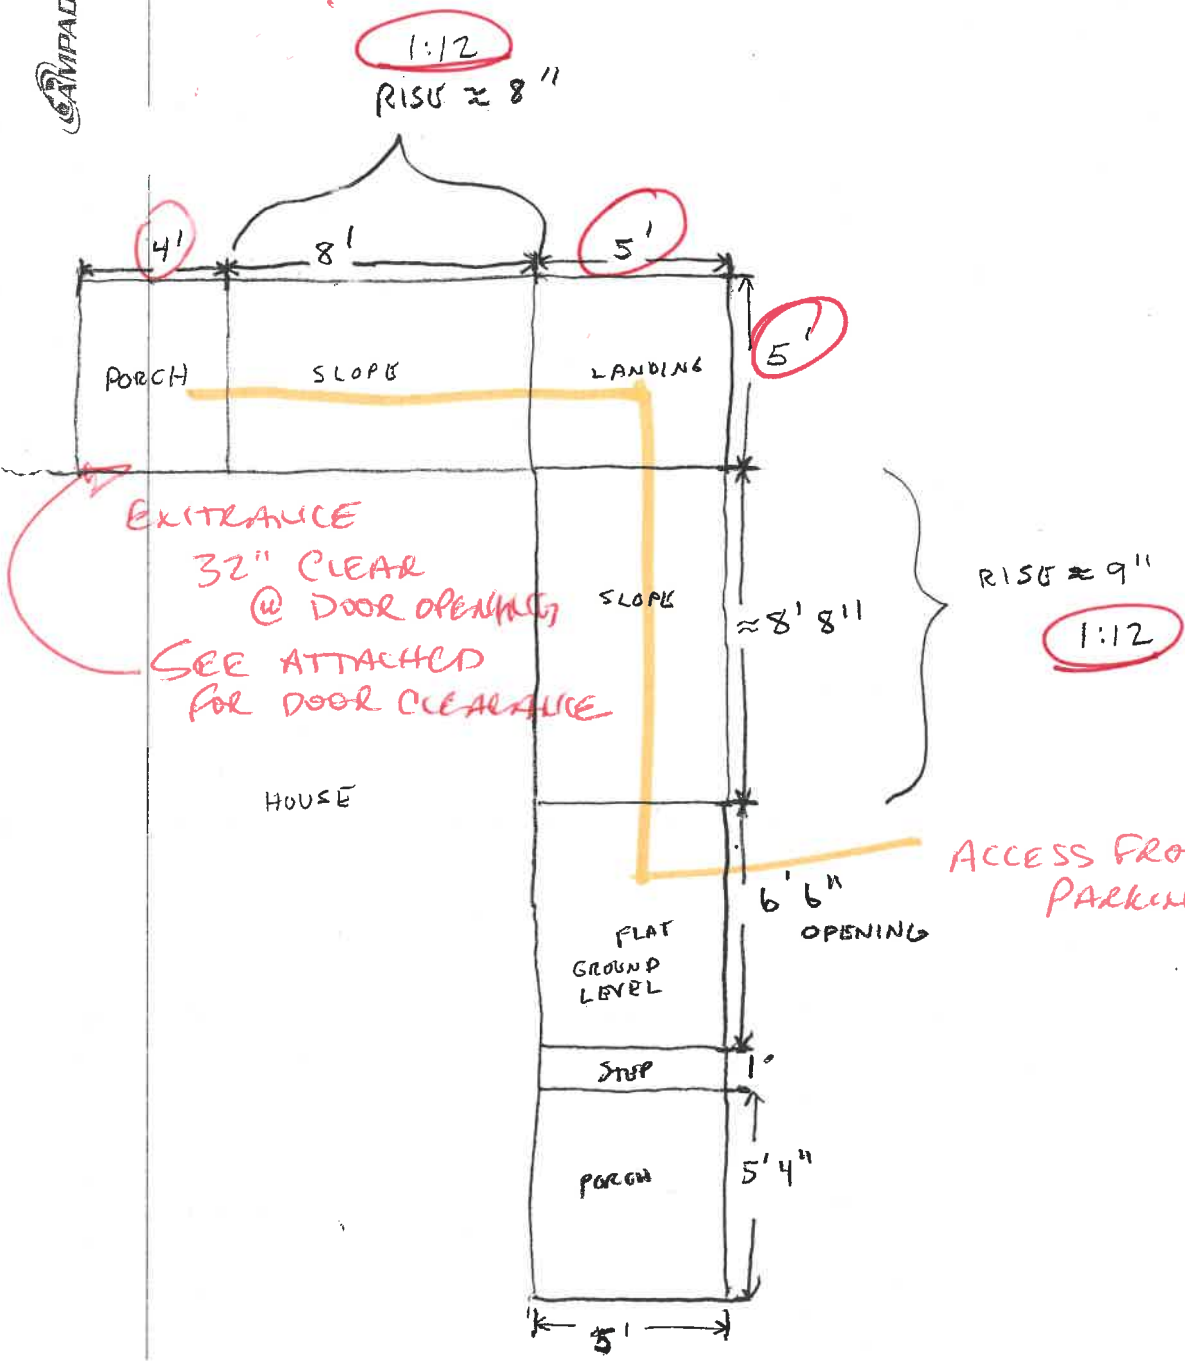 AMPAD
1:12
RISE ≈ 8"
4'
8'
5'
5'
PORCH
SLOPE
LANDING
ENTRANCE
32" CLEAR
@ DOOR OPENING
SEE ATTACHED
FOR DOOR CLEARANCE
SLOPE
≈ 8' 8"
RISE ≈ 9"
1:12
HOUSE
ACCESS FRO
PARKIN
6' 6"
OPENING
FLAT
GROUND
LEVEL
STEP
1'
PORCH
5' 4"
5'